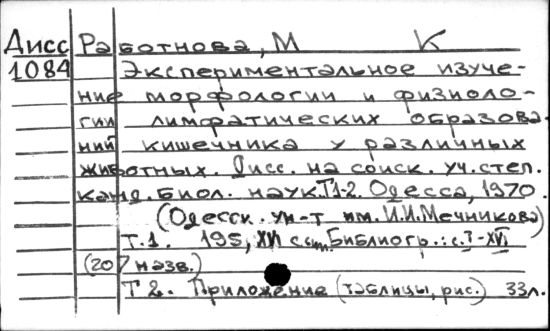 Дисс Работнова, М К
1084 Экспериментальное изуче-
ние морфологии и физиоло-
гии лимфатических образова-
ний кишечника у различных
животных. Дисс. на соиск. уч. степ.
канд. биол. наук. Т.1-2. Одесса, 1970.
(Одесск. ун-т им. И.И.Мечникова)
Т.1. 195, XVI с. Библиогр.: с. I-XVI
(207 назв.)
Т 2. Приложение (таблицы, рис.) 33л.